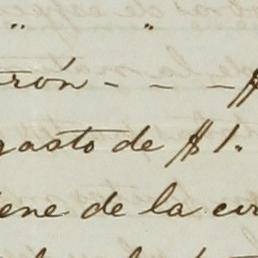 " "
trón - - - $
gasto de $1.
iene de la cir